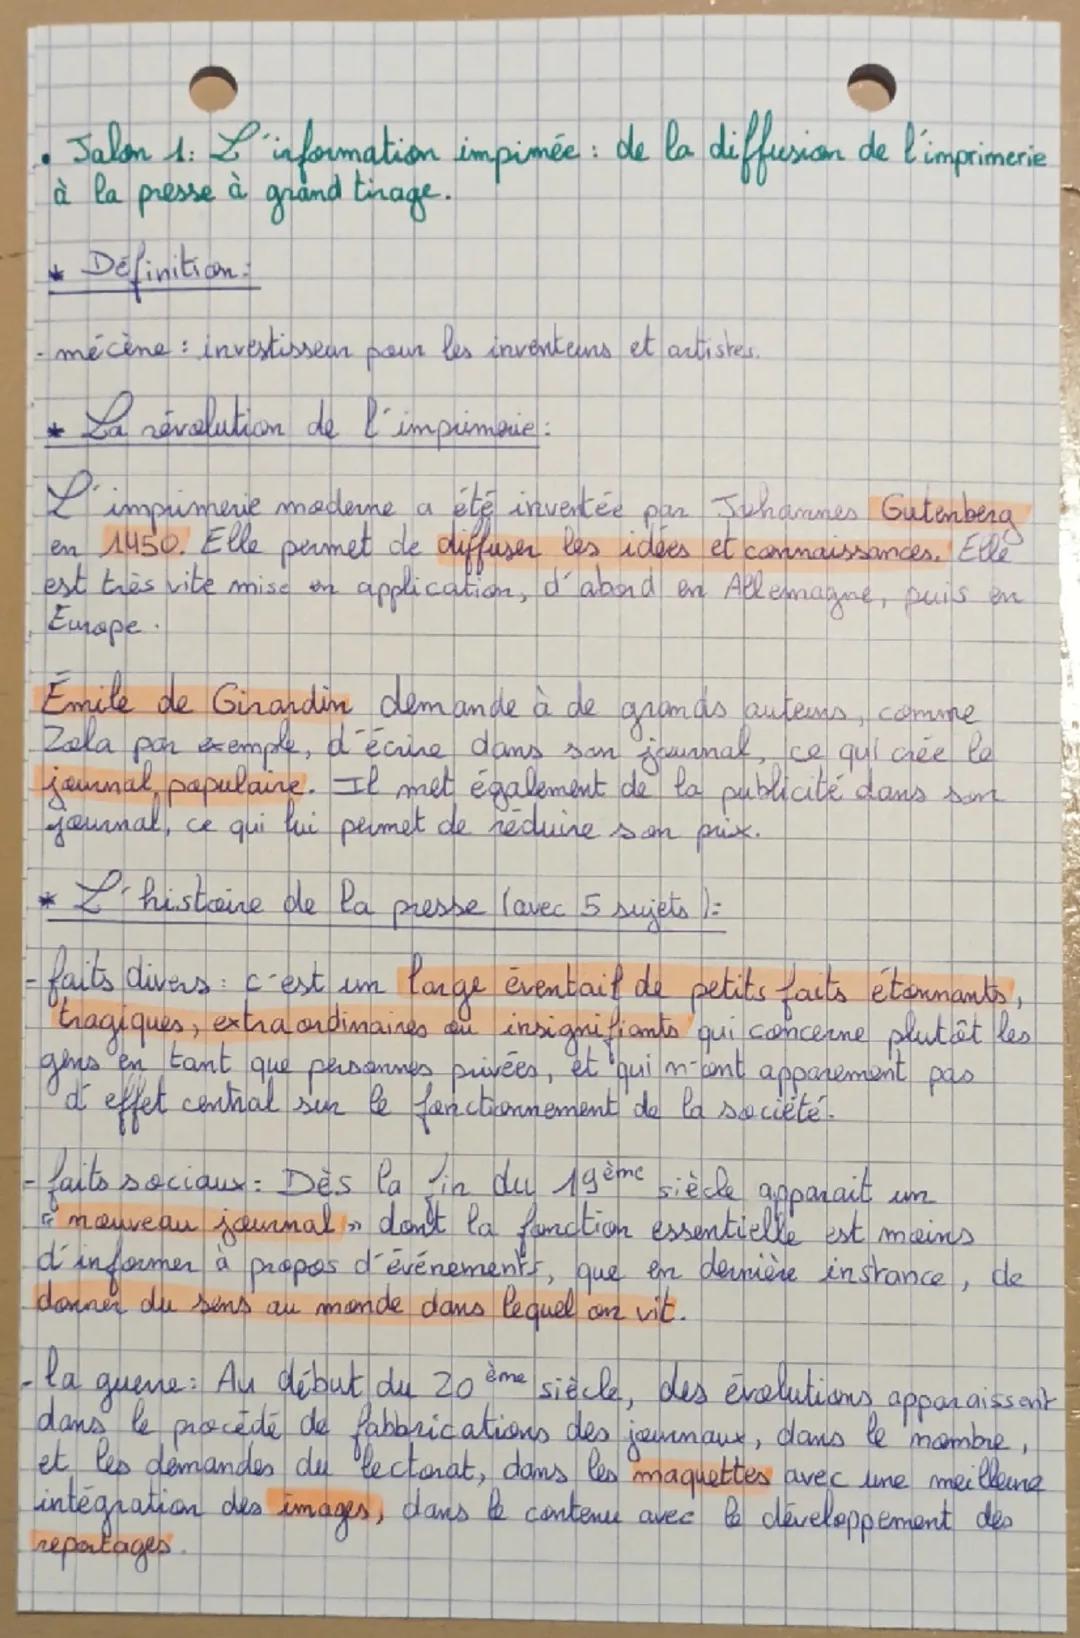 • Jalon 1: L'information impimée : de la diffusion de l'imprimerie
à la presse à grand tirage.
* Définition:
- mécène : investisseur pour les inventeurs et artistes.
* La révolution de l'imprimerie :
L'imprimerie moderne a été inventée par Johannes Gutenberg
en 1450. Elle permet de diffuser les idées et connaissances. Elle
est très vite mise en application, d'abord en Allemagne, puis en
Europe.
Émile de Girardin demande à de grands auteurs, comme
Zola par exemple, d'écrire dans son journal, ce qui crée le
journal populaire. Il met également de la publicité dans son
journal, ce qui lui permet de réduire son prix.
* L'histoire de la presse (avec 5 sujets) :
- faits divers : c'est un large éventail de petits faits étonnants,
tragiques, extraordinaires ou insignifiants qui concerne plutôt les
gens en tant que personnes privées, et qui n'ont apparement pas
d'effet central sur le fonctionnement de la société.
- faits sociaux : Dès la fin du 19ème siècle apparait un
« nouveau journal » dont la fonction essentielle est moins
d'informer à propos d'événements, que en dernière instance, de
donner du sens au monde dans lequel on vit.
- la guerre : Au début du 20ème siècle, des évolutions apparaissent
dans le procédé de fabbrications des journaux, dans le nombre,
et les demandes du lectorat, dans les maquettes avec une meilleure
intégration des images, dans le contenu avec le développement des
reportages.